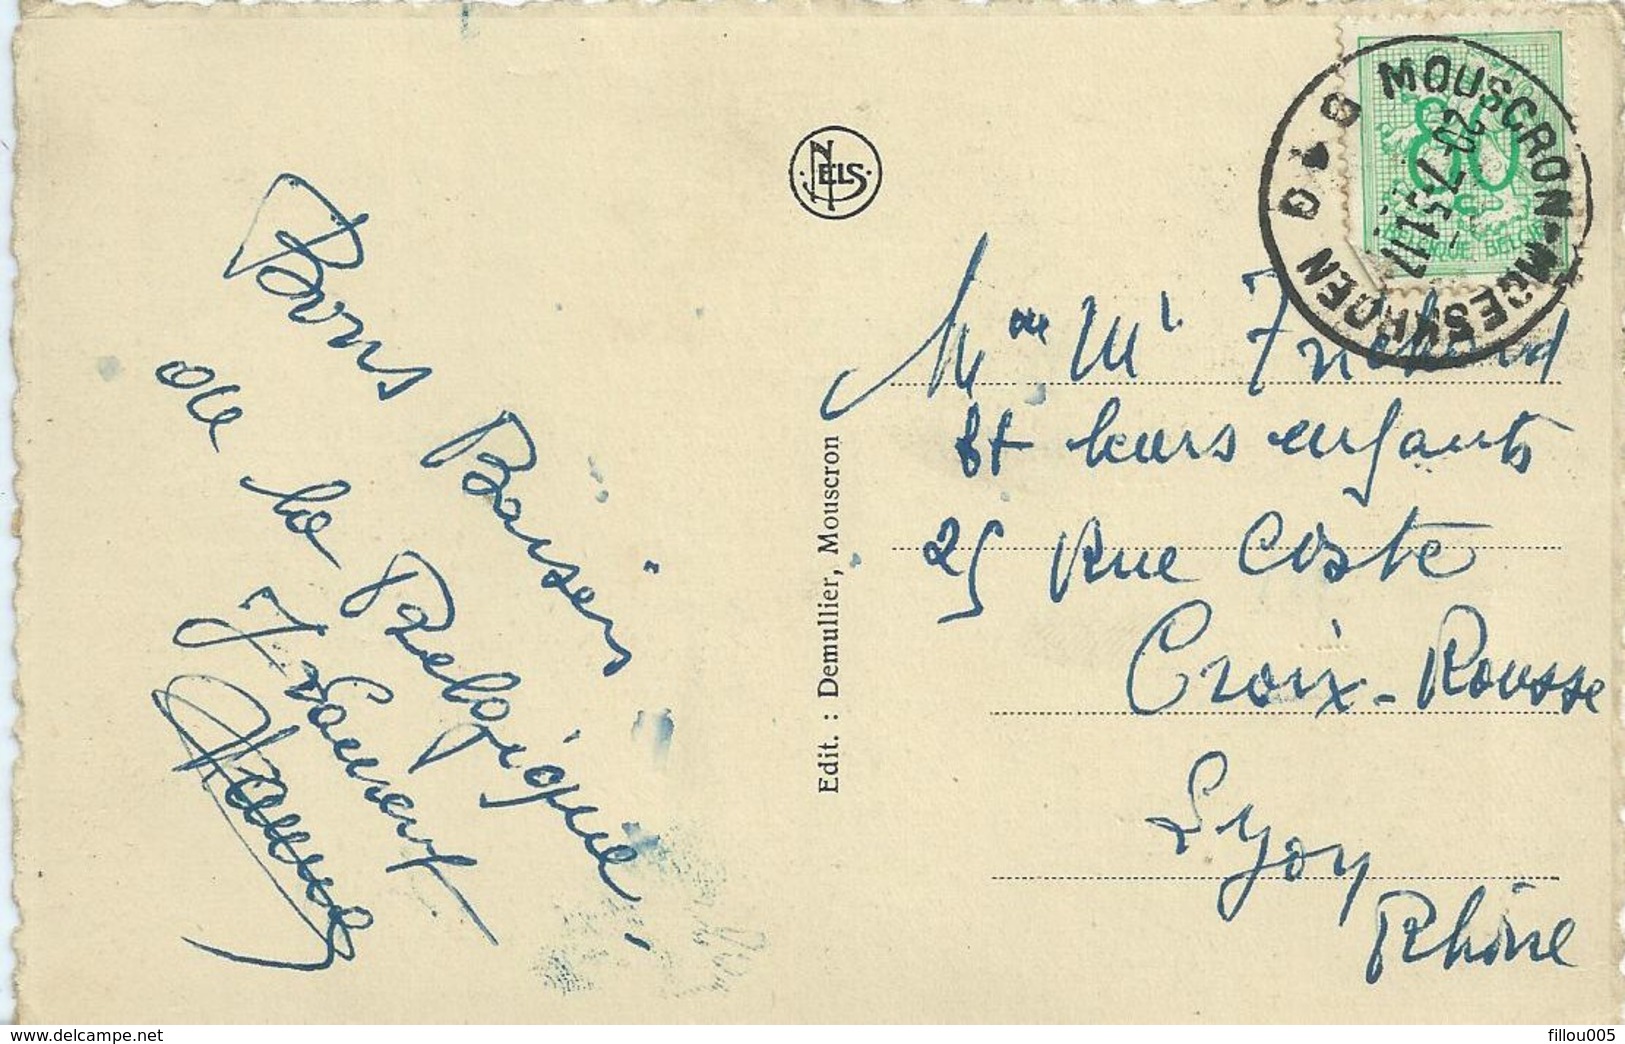 Bons Baisers
de la Belgique
NELS
Edit. : Demullier, Mouscron
MOUSCRON-MOESKROEN
20-7
17
80
BELGIQUE BELGIE
Mme Mr
Et leurs enfants
25 Rue Coste
Croix-Rousse
Lyon
Rhône
www.delcampe.net
fillou005